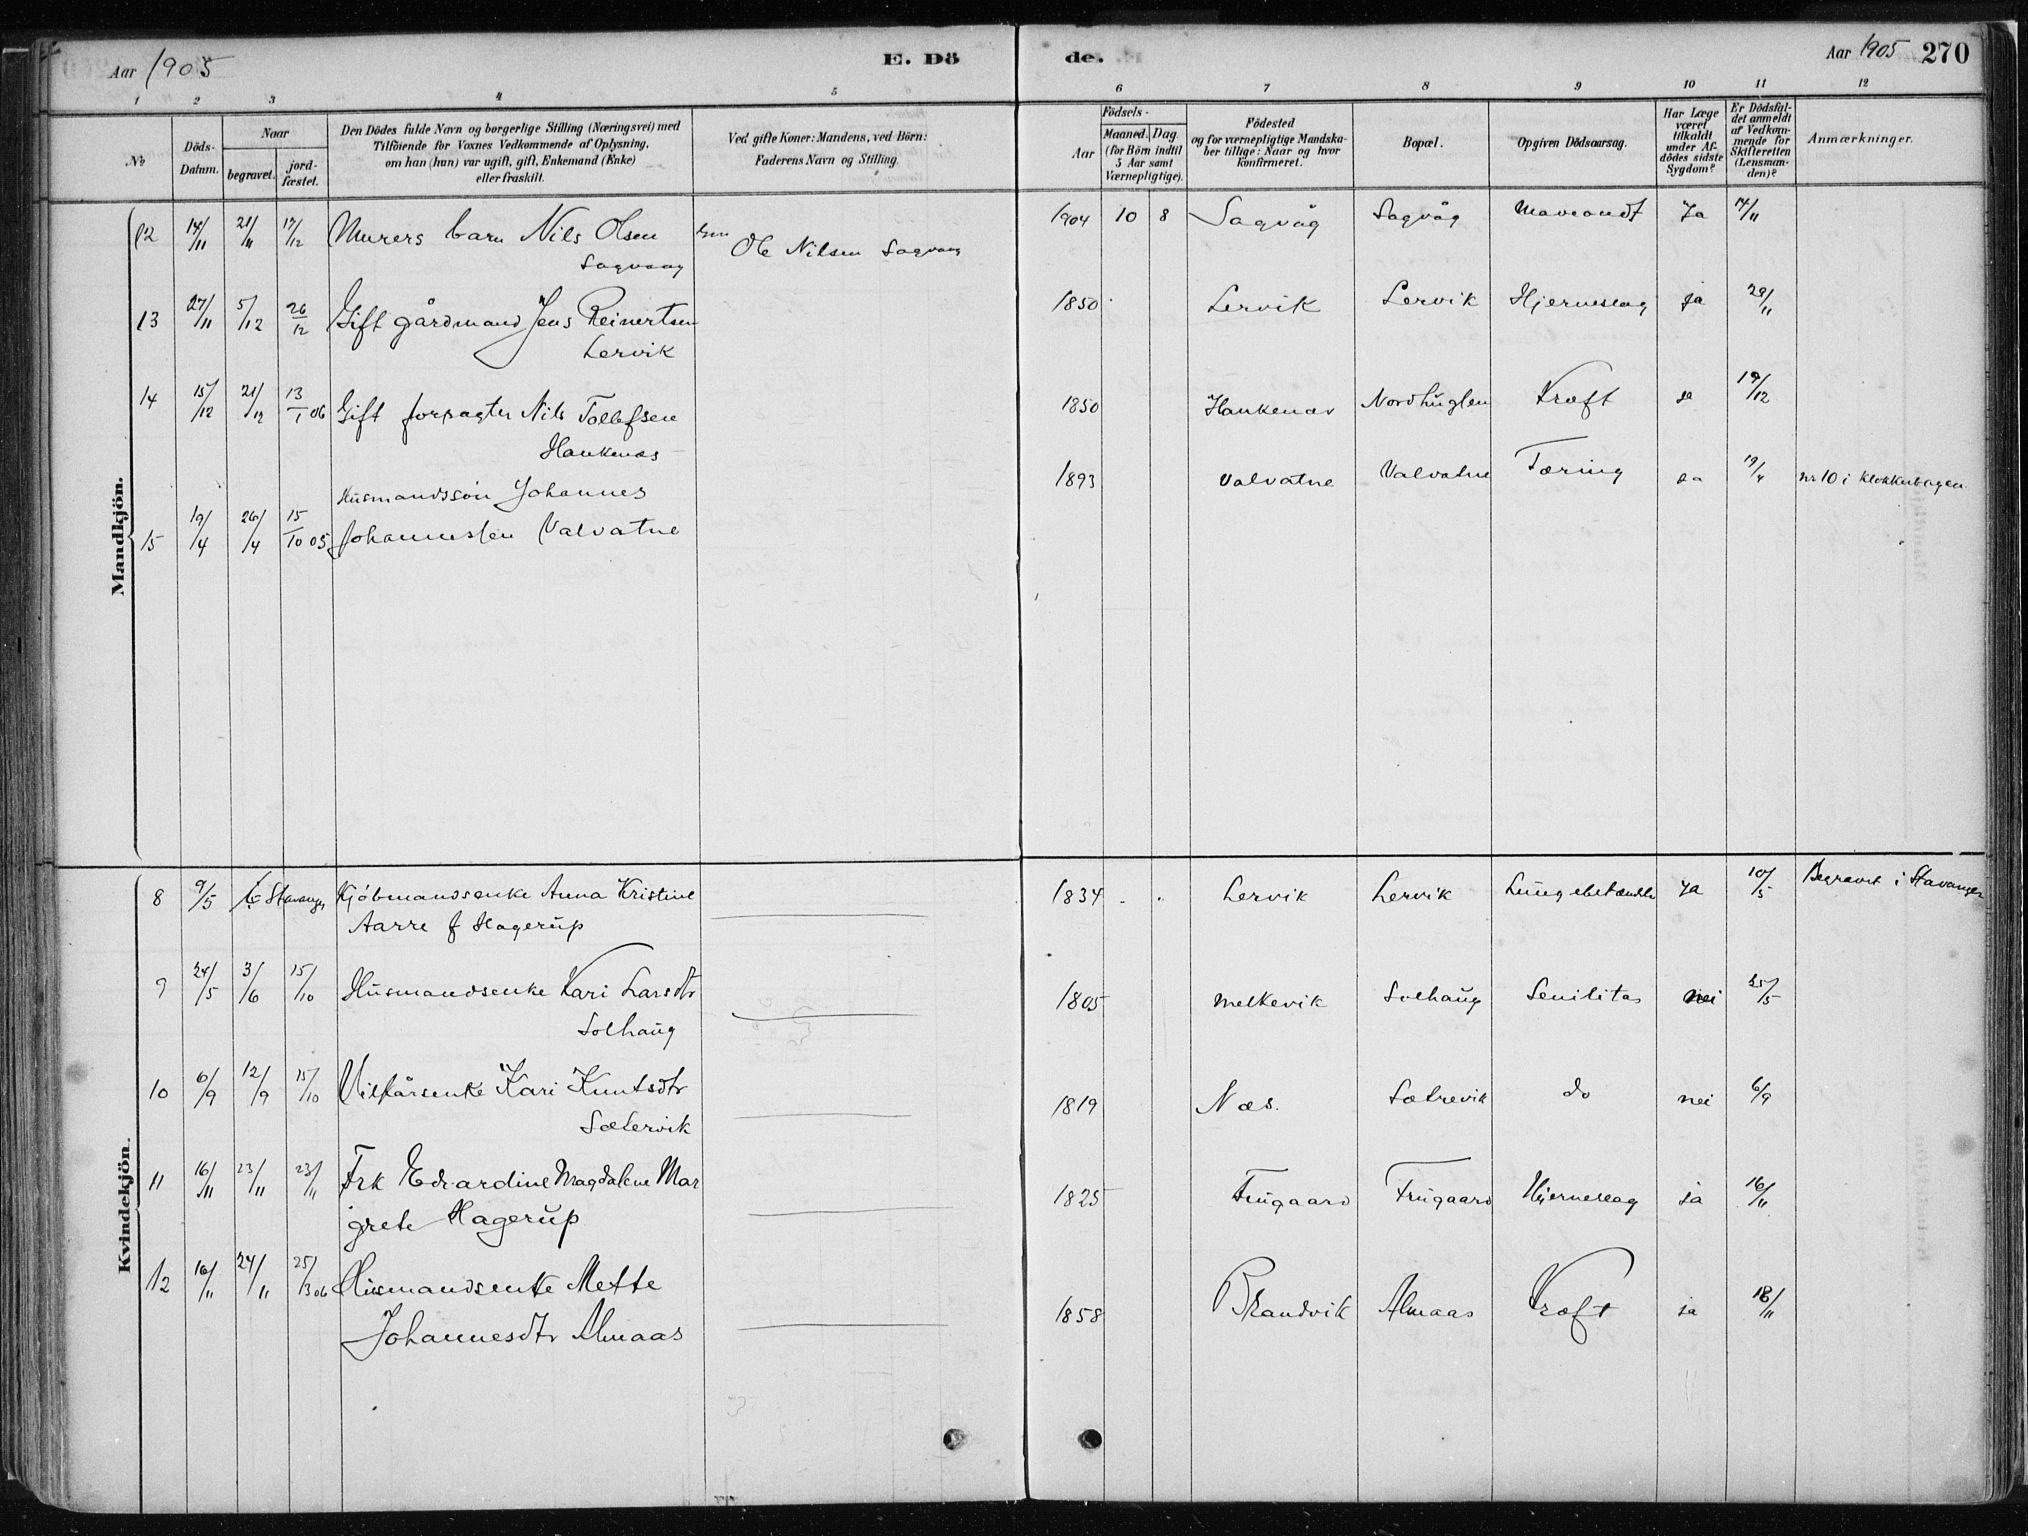 Aar 1905 E. Dö de. Aar 1905 270
1 2 3 4 5 6 7 8 9 10 11 12
No Döds-Datum. Naar begravet. jord-fæstet. Den Dödes fulde Navn og borgerlige Stilling (Næringsvei) med Tilföiende for Voxnes Vedkommende af Oplysning, om han (hun) var ugift, gift, Enkemand (Enke) eller fraskilt. Ved gifte Koner: Mandens, ved Börn: Faderens Navn og Stilling. Födsels- Aar Maaned. Dag (for Börn indtil 5 Aar samt Værnepligtige). Födested og for værnepligtige Mandskaber tillige: Naar og hvor konfirmeret. Bopæl. Opgiven Dödsaarsag. Har Læge været tilkaldt under Afdödes sidste Sygdom? Er Dödsfaldet anmeldt af Vedkommende for Skifteretten (Lensmanden)? Anmærkninger.
Mandkjön.
12 14/11 21/11 17/12 Murers barn Nils Olsen Ole Nilsen Sagvaag 1904 10 8 Sagvåg Sagvåg Ja 14/11
Sagvaag
13 27/11 5/12 26/12 Gift gårdmand Jens Reinertsen 1850 Lervik Lervik Hjerneslag ja 29/11
Lervik
14 15/12 21/12 13/1 06 Gift forpagter Nils Tollefsen 1850 Haukenæs Nordhuglen Kræft ja 19/12
Haukenæs
Husmandssön Johannes 1893 Valvatne Valvatne Tæring ja 19/4 nr 10 i klokkerbogen
15 19/4 26/4 15/10 05 Johannessen Valvatne
Kvindekjön.
8 9/5 Stavanger Kjöbmandsenke Anna Kristine 1834 Lervik Lervik Lungebetændelse Ja 10/5 Begravet i Stavanger
Aarre f Hagerup
9 24/5 3/6 15/10 Husmandsenke Kari Larsdtr 1805 Melkevik Solhaug Senilitas nei 25/5
Solhaug
10 6/9 12/9 15/10 Vilkårsenke Kari Knutsdtr 1819 Næs. Sætrevik do nei 6/9
Sætervik
11 16/11 23/11 23/11 Frk Edvardine Magdalene Mar 1825 Frugaard Frugaard Hjerneslag ja 16/11
grete Hagerup
12 16/11 24/11 25/3 06 Husmandsenke Mette 1858 Brandvik Almaas Kræft ja 18/11
Johannesdtr Almaas